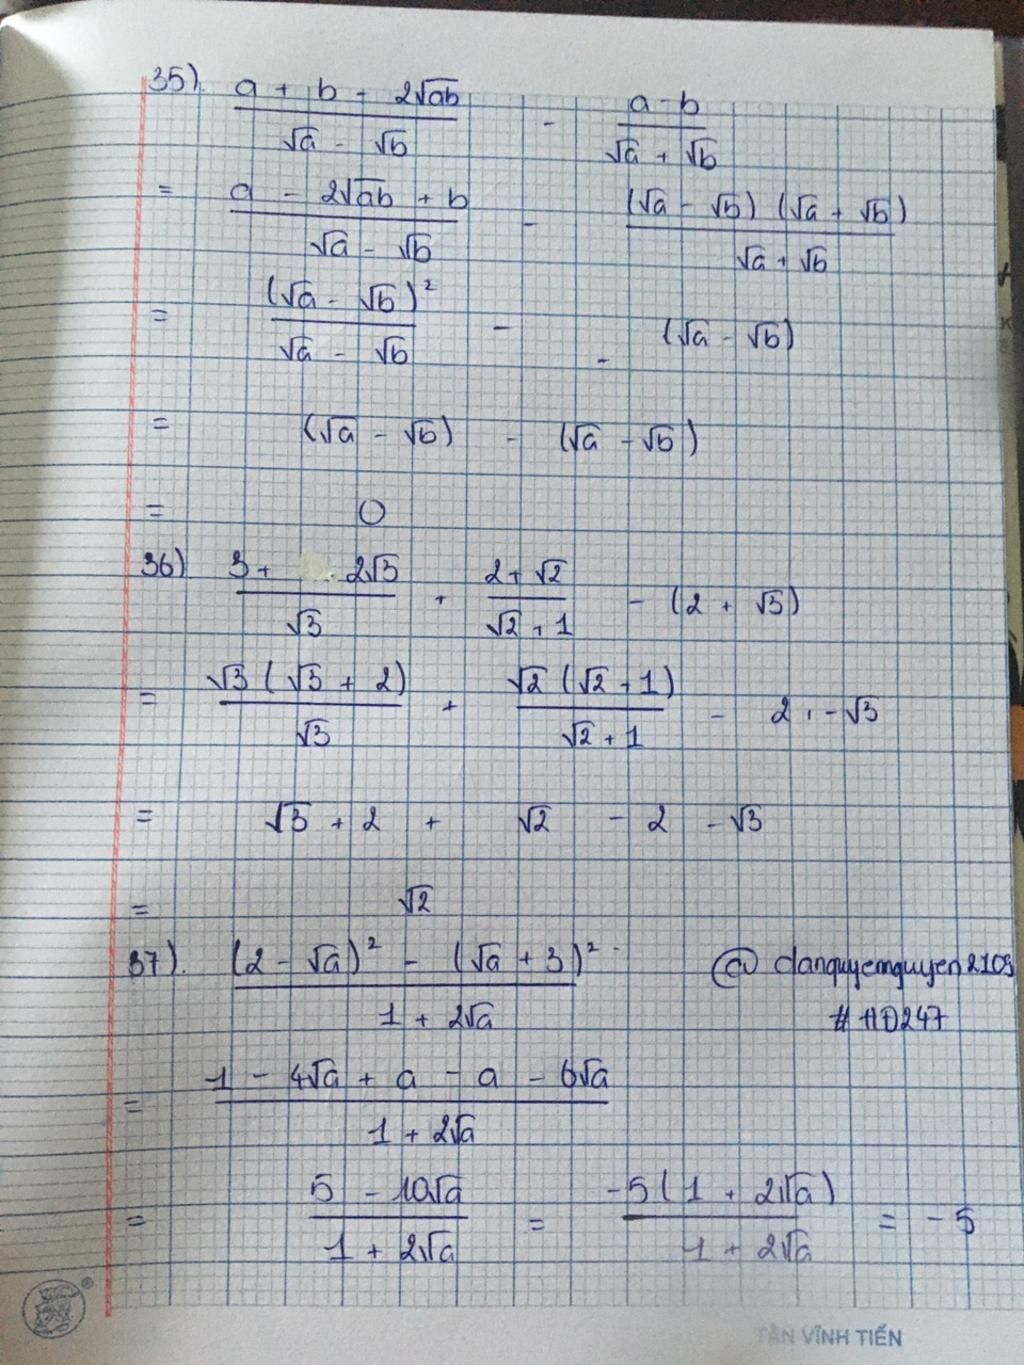 35) (a + b - 2√ab)/(√a - √b) - (a - b)/(√a + √b)
= (a - 2√ab + b)/(√a - √b) - ((√a - √b) (√a + √b))/(√a + √b)
= (√a - √b)²/(√a - √b) - - (√a - √b)
= (√a - √b) - (√a - √b)
= 0
36) (3 + 2√3)/√3 + (2 + √2)/(√2 + 1) - (2 + √3)
= (√3 (√3 + 2))/√3 + (√2 (√2 + 1))/(√2 + 1) - 2 - √3
= √3 + 2 + √2 - 2 - √3
= √2
37). ((2 - √a)² - (√a + 3)²)/(1 + 2√a)
@ danquyemnguyen2109
# HD247
= (1 - 4√a + a - a - 6√a)/(1 + 2√a)
= (5 - 10√a)/(1 + 2√a) = (-5(1 + 2√a))/(1 + 2√a) = -5
TÂN VĨNH TIẾN